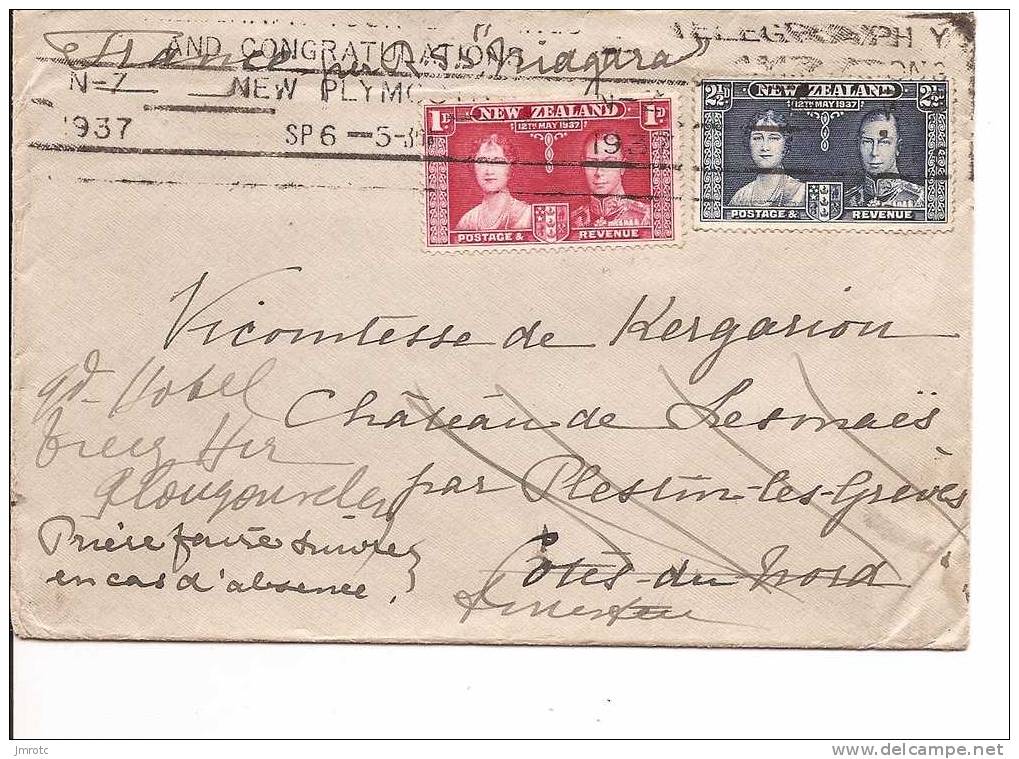 AND CONGRATULATIONS
TELEGRAPH Y
France per R.M.S. "Niagara"
N-Z NEW PLYMO
1937 SP 6 - 5-3
193
1D NEW ZEALAND 1D
12TH MAY 1937
POSTAGE & REVENUE
2½D NEW ZEALAND 2½D
12TH MAY 1937
POSTAGE & REVENUE
Vicomtesse de Kergariou
Château de Lesmaës
par Plestin-les-Grèves
Côtes-du-Nord
gd Hotel
Trez Hir
Plougonvelen
Finistère
Prière faire suivre
en cas d'absence!
jmrotc
www.delcampe.net